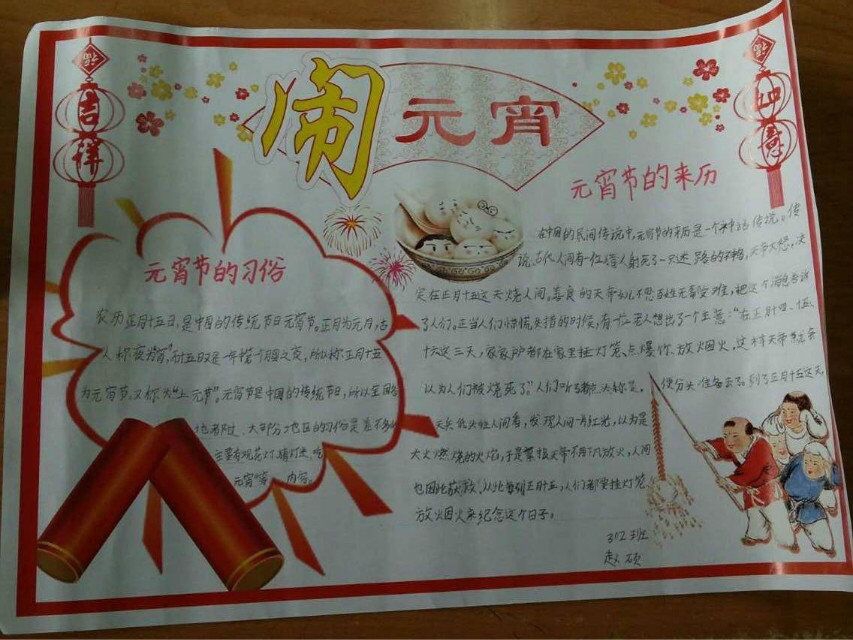 闹元宵
福
吉祥
福
如意
元宵节的习俗
农历正月十五日,是中国的传统节日元宵节。正月为元月,古
人称夜为宵,而十五日又是一年中第一个月圆之夜,所以称正月十五
为元宵节。又称为“上元节”。元宵节是中国的传统节日,所以全国各
地都过,大部分地区的习俗是差不多的
主要有观花灯、猜灯谜、吃
元宵等 内容。
元宵节的来历
在中国的民间传说中,元宵节的来历是一个神话传说。传
说,古代人间有一位猎人射死了一只迷路的神鹅,天帝大怒,决
定在正月十五这天烧人间,善良的天帝幼儿不忍百姓无辜受难,把这个消息告诉
了人们。正当人们惊慌失措的时候,有一位老人想出了个主意:“在正月十四、十五、
十六这三天,家家户户都在家里挂灯笼、点爆竹、放烟火,这样天帝就会
以为人们被烧死了”人们听了都点头称是,便分头准备去了。到了正月十五这天,
天兵低头往人间看,发现人间一片红光,以为是
大火燃烧的火焰,于是禀报天帝不用下凡放火,人间
也因此获救,从此每到正月十五,人们都要挂灯笼
放烟火来纪念这个日子。
302班
赵硕